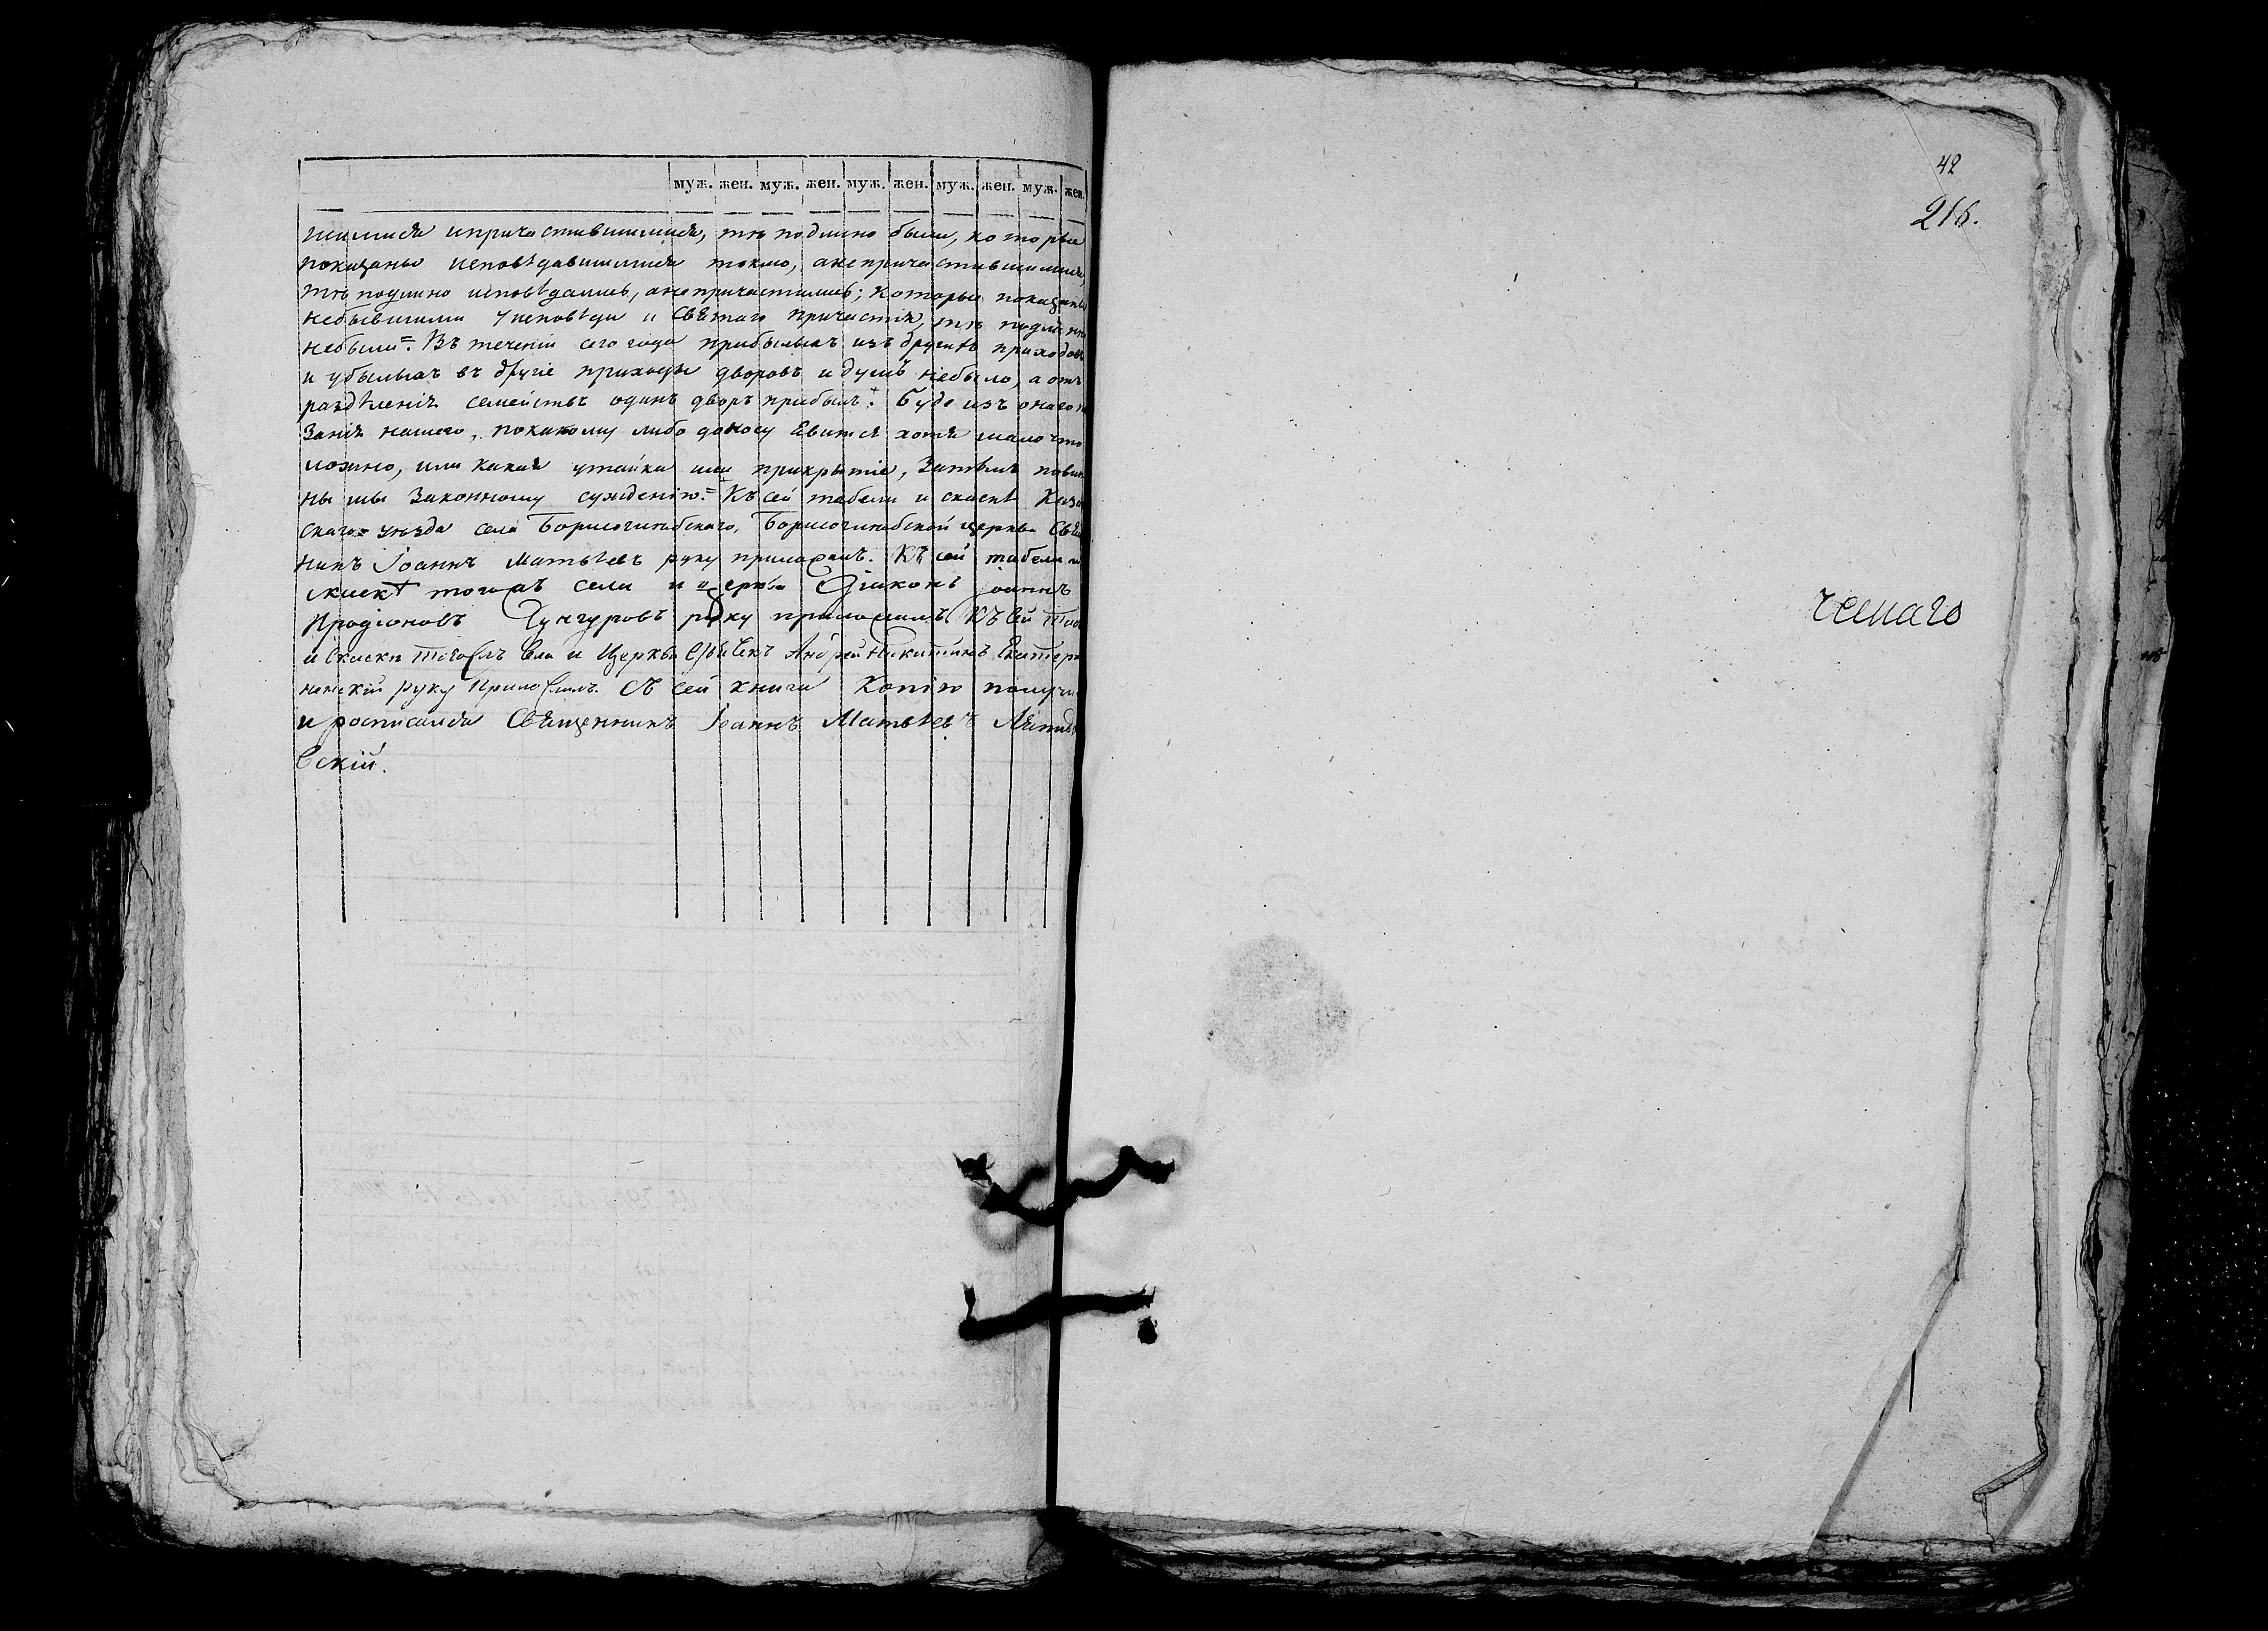 муж. жен. муж. жен. муж. жен. муж. жен. муж. жен.
шимися ипричастившимися, тѣ подлино были, которые
показаны исповѣдавшимися токмо, анепричастившимися,
тѣ подлино исповѣдались, анепричастились; которые показаны
небывшими уисповѣди и святаго причастія, тѣ подлинно
небыли = Въ теченіи сего года прибылыхъ изъ другихъ приходовъ
и убылыхъ въ другіе приходы дворовъ и душъ небыло, а отъ
раздѣленія семействъ одинъ дворъ прибылъ. Буде изъ онаго
занія нашего, покакому либо доносу явится хотя мало что
ложно, или какая утайка или прикрытіе, Затѣмъ повин
ны мы Законному сужденію = Къ сей табели и скаскѣ Каза
скаго уѣзда села Борисоглебскаго, Борисоглебской церкви Свя
никъ Іоаннъ Матвѣевъ руку приложилъ. Къ сей табели и
скаскѣ тогожъ села и церкви Діаконъ Іоаннъ
Иродіоновъ Кунгуровъ руку приложилъ Къ сей таб
и скаски тогожъ села и Церкви Андрей Никитинъ Екатери
нинскій руку Приложилъ. Съ сей книги Копію получи
и росписался Священникъ Іоаннъ Матвѣевъ
вскій.
42
216.
ченаго